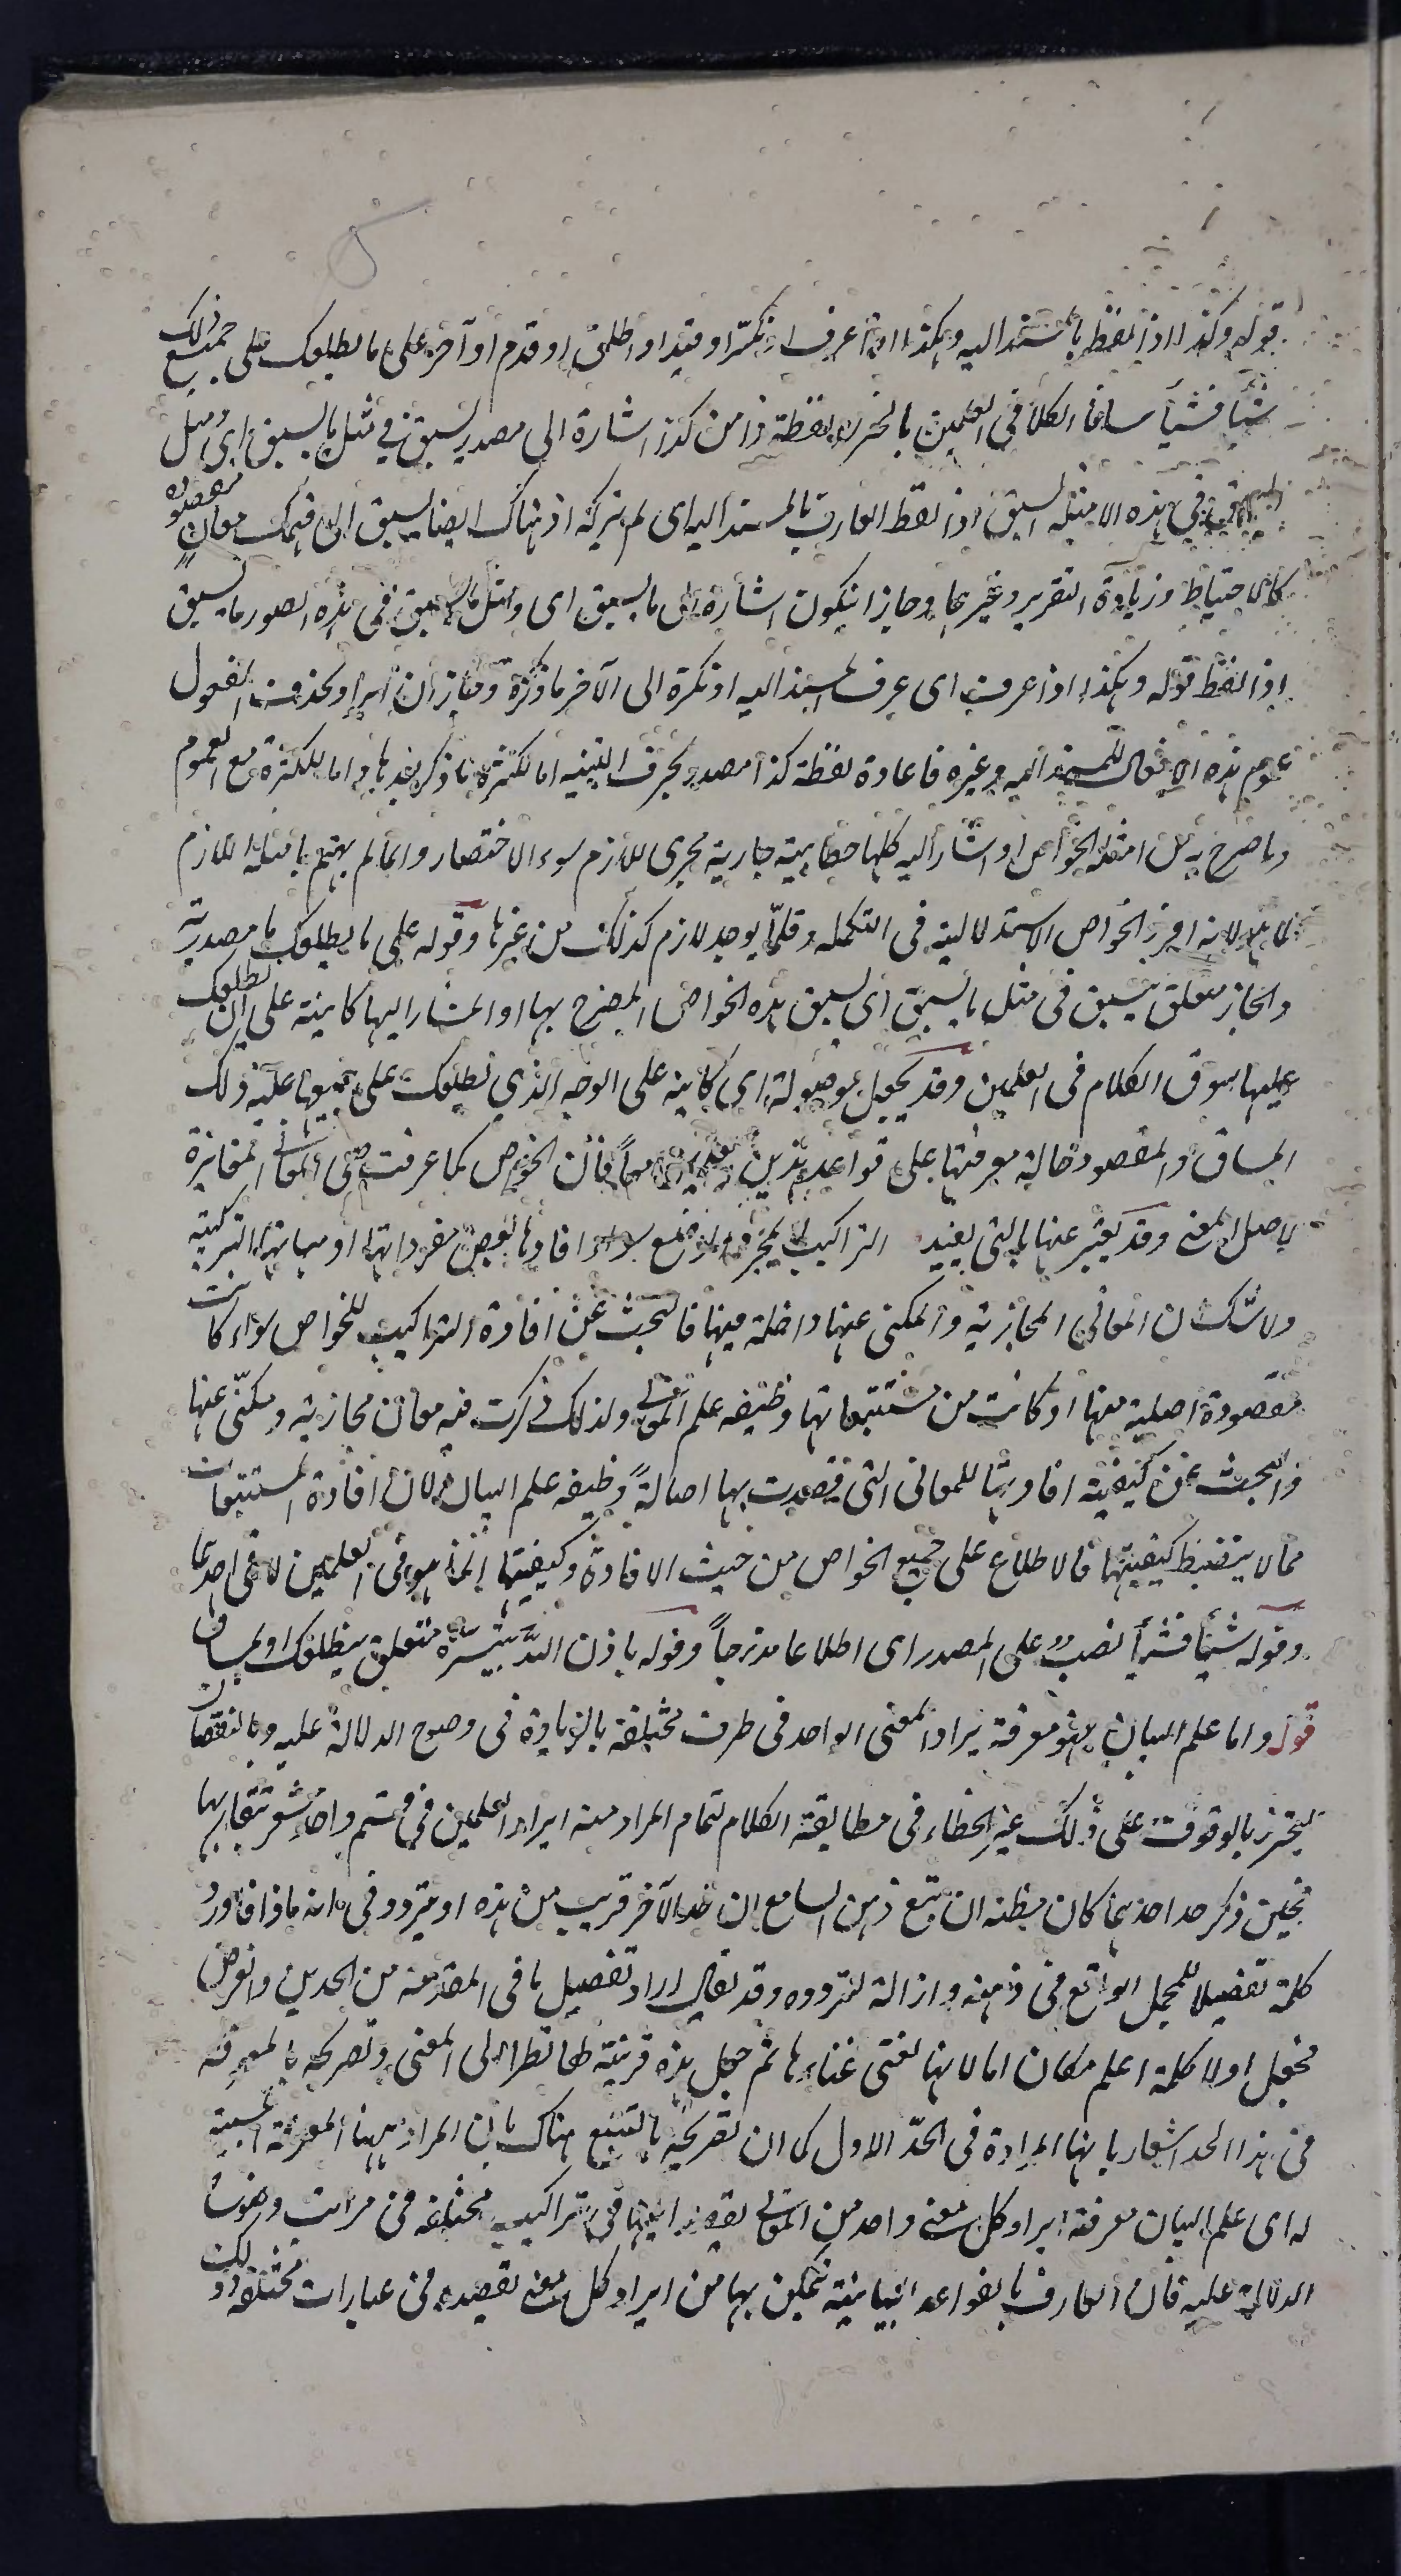 قوله وكذا اذا لفظ بالمسند اليه وهكذا اذا عرف او نكر او قيد او اطلق او قدم او آخر على ما يطلعك على جميع ذلك
شيأ فشيأ مساق الكلام في العلمين بالخبر ولفظة ذا من كذا اشارة الى مصدر يسبق في مثل ما يسبق اى مثل
السبق في هذه الامثلة يسبق اذا لفظ العارف بالمسند اليه اى لم يتركه اذ هناك ايضا يسبق الى فهمك معان مقصودة
كالاحتياط وزيادة التقرير وغيرهما وجاز ان يكون اشارة الى ما يسبق اى ومثل ما يسبق في هذه الصور ما يسبق
اذا لفظ قوله وهكذا اذا عرف اى عرف المسند اليه او نكره الى الآخر ما ذكره وجاز ان يراد بحذف المفعول
عموم هذه الافعال للمسند اليه وغيره فاعادة لفظة كذا مصدرة بحرف التنبيه اما لكثرة ما ذكر بعدها واما للكثرة مع العموم
وما صرح به من امثلة الخواص او اشار اليه كلها خطابية جارية مجرى اللازم سوى الاختصار وانما لم يهتم بامثلة اللازم
لما هو لانه افرز الخواص الاستدلالية في التكملة وقلما يوجد لازم كذلك من غيرها وقوله على ما يطلعك ما مصدرية
والجار متعلق بيسبق في مثل ما يسبق اى يسبق هذه الخواص المصرح بها او المشار اليها كائنة على ان يطلعك
عليها سوق الكلام في العلمين وقد يجعل موصولة اى كائنة على الوجه الذي يطلعك على جميعها عليه ذلك
المساق والمقصود حالة معرفتها على قواعد هذين العلمين معاً فان الخواص كما عرفت هي المعاني المغايرة
لاصل المعنى وقد يعبر عنها بالتي يفيد التراكيب لا بمجرد الوضع سواء افادها بعض مفرداتها او هيأتها التركيبية
ولا شك ان المعاني المجازية والمكنى عنها داخلة فيها فالبحث عن افادة التراكيب للخواص سواء كانت
مقصودة اصلية منها او كانت من مستتبعاتها وظيفة علم المعاني ولذلك ذكرت فيه معان مجازية ومكنى عنها
والبحث عن كيفية افادتها للمعاني التي قصدت بها اصالةً وظيفة علم البيان لان افادة المستتبعات
مما لا ينضبط كيفيتها فالاطلاع على جميع الخواص من حيث الافادة وكيفيتها انما هو في العلمين لا في احدهما
وقوله شيأ فشيأ نصب على المصدر اى اطلاعا متدرجاً وقوله باذن الله بتيسيره متعلق بيطلعك او بمساق
قوله واما علم البيان فهو معرفة ايراد المعنى الواحد في طرق مختلفة بالزيادة في وضوح الدلالة عليه وبالنقصان
ليحترز بالوقوف على ذلك عن الخطاء في مطابقة الكلام لتمام المراد منه ايراد العلمين في قسم واحد يشعر بتقاربهما
فحين ذكر حد احدهما كان مظنة ان يقع في ذهن السامع ان حد الآخر قريب من هذه او يتردد في انه ماذا فاورد
كلمة تفصيلا للمجمل الواقع في ذهنه وازالة لتردده وقد يقال اراد تفصيل ما في المقدمة من الحدين والغرض
فجعل اولا كلمة اعلم مكان اما لانها تغني غناءها ثم جعل هذه قرينة لها نظرا الى المعنى وتصريحه بالمعرفة
في هذا الحد اشعار بانها المرادة في الحدّ الاول كما ان تصريحه بالتتبع هناك بان المراد ههنا المعرفة المسببة
له اى علم البيان معرفة ايراد كل معنى واحد من المعاني يقصد ايرادها في تراكيب مختلفة في مراتب وضوح
الدلالة عليه فان العارف بالقواعد البيانية تمكن بها من ايراد كل معنى يقصده في عبارات مختلفة وذلك